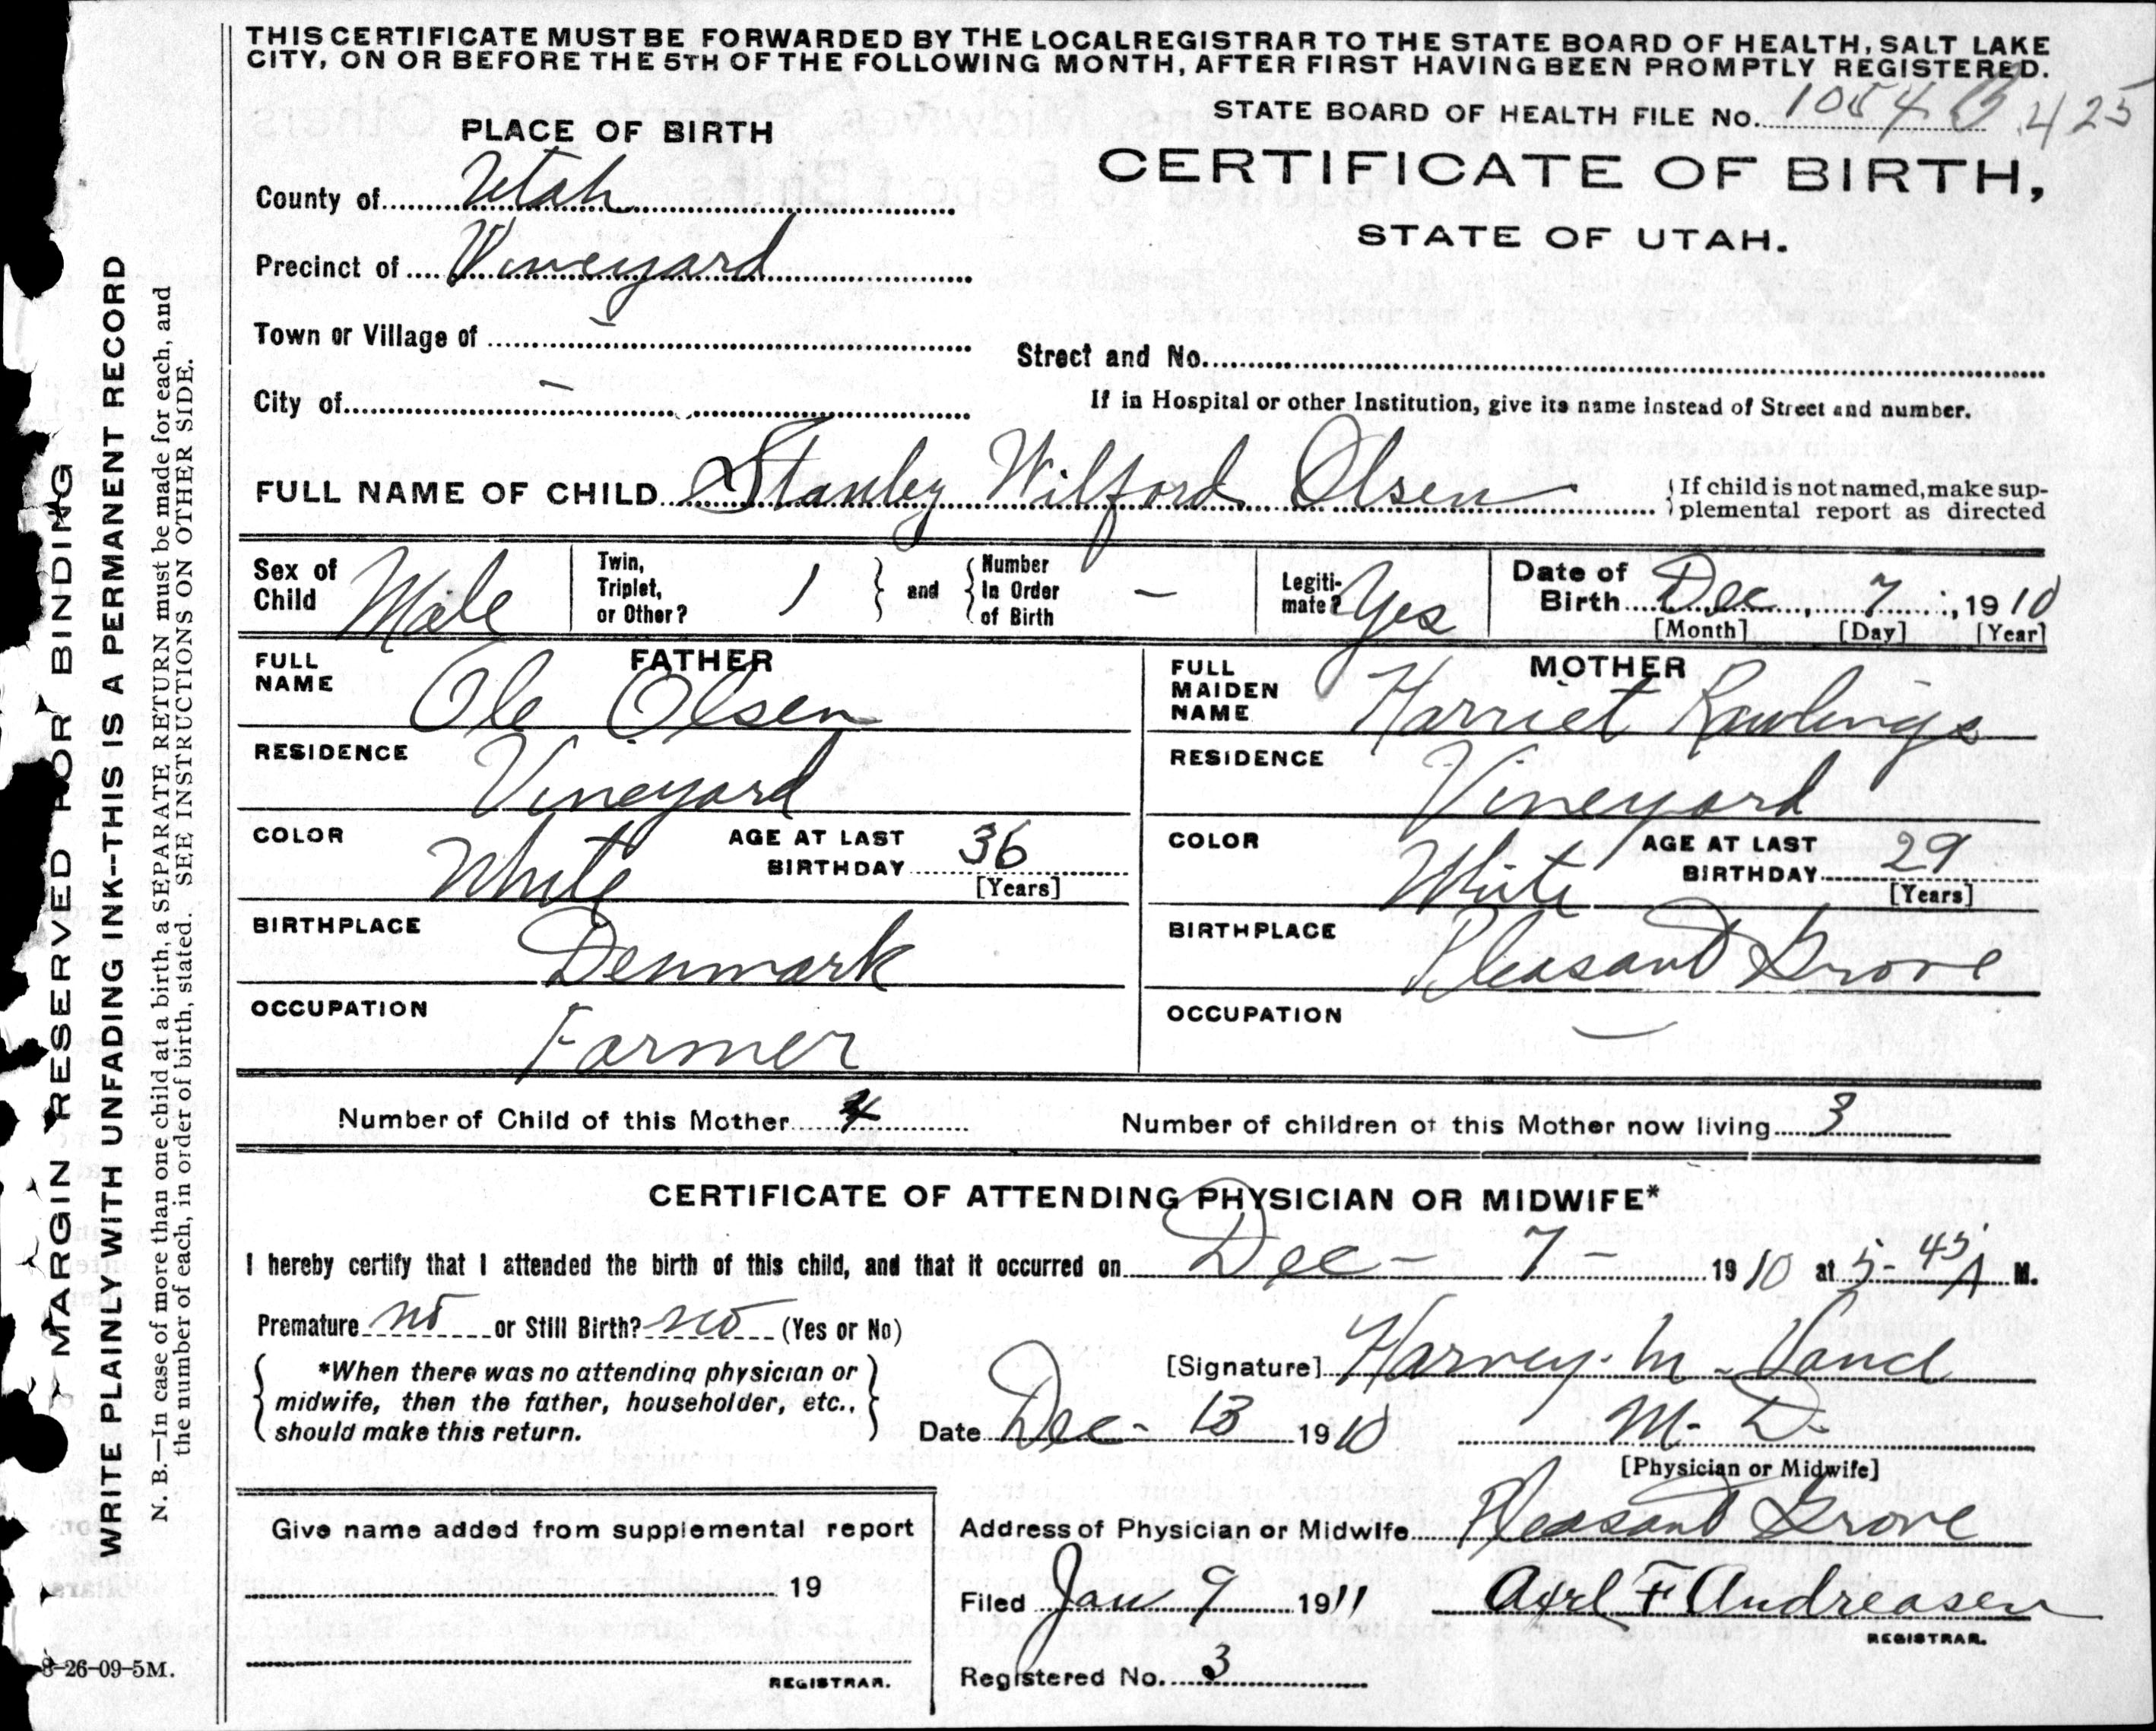 THIS CERTIFICATE MUST BE FORWARDED BY THE LOCAL REGISTRAR TO THE STATE BOARD OF HEALTH, SALT LAKE
CITY, ON OR BEFORE THE 5TH OF THE FOLLOWING MONTH, AFTER FIRST HAVING BEEN PROMPTLY REGISTERED.
STATE BOARD OF HEALTH FILE No. 1054 B 425
PLACE OF BIRTH
CERTIFICATE OF BIRTH,
STATE OF UTAH.
County of Utah
Precinct of Vineyard
Town or Village of -
Street and No.
City of -
If in Hospital or other Institution, give its name instead of Street and number.
FULL NAME OF CHILD Stanley Wilford Olsen
{If child is not named, make sup-
plemental report as directed
Sex of Child Male
Twin, Triplet, or Other? 1 } and { Number In Order of Birth -
Legiti-mate? Yes
Date of Birth Dec, 7, 1910
[Month] [Day] [Year]
FATHER
FULL NAME Ole Olsen
RESIDENCE Vineyard
COLOR White AGE AT LAST BIRTHDAY 36
[Years]
BIRTHPLACE Denmark
OCCUPATION Farmer
MOTHER
FULL MAIDEN NAME Harriet Rawlings
RESIDENCE Vineyard
COLOR White AGE AT LAST BIRTHDAY 29
[Years]
BIRTHPLACE Pleasant Grove
OCCUPATION —
Number of Child of this Mother 4 Number of children of this Mother now living 3
CERTIFICATE OF ATTENDING PHYSICIAN OR MIDWIFE*
I hereby certify that I attended the birth of this child, and that it occurred on Dec - 7 - 1910 at 5-45 A M.
Premature no or Still Birth? no (Yes or No)
{ *When there was no attending physician or
midwife, then the father, householder, etc.,
should make this return. }
[Signature] Harvey. M.
Date Dec - 13 1910 M. D.
[Physician or Midwife]
Give name added from supplemental report
19
REGISTRAR.
Address of Physician or Midwife Pleasant Grove
Filed Jan 9 1911 Axel F Andreasen
REGISTRAR.
Registered No. 3
8-26-09-5M.
MARGIN RESERVED FOR BINDING
WRITE PLAINLY WITH UNFADING INK--THIS IS A PERMANENT RECORD
N. B.—In case of more than one child at a birth, a SEPARATE RETURN must be made for each, and
the number of each, in order of birth, stated. SEE INSTRUCTIONS ON OTHER SIDE.